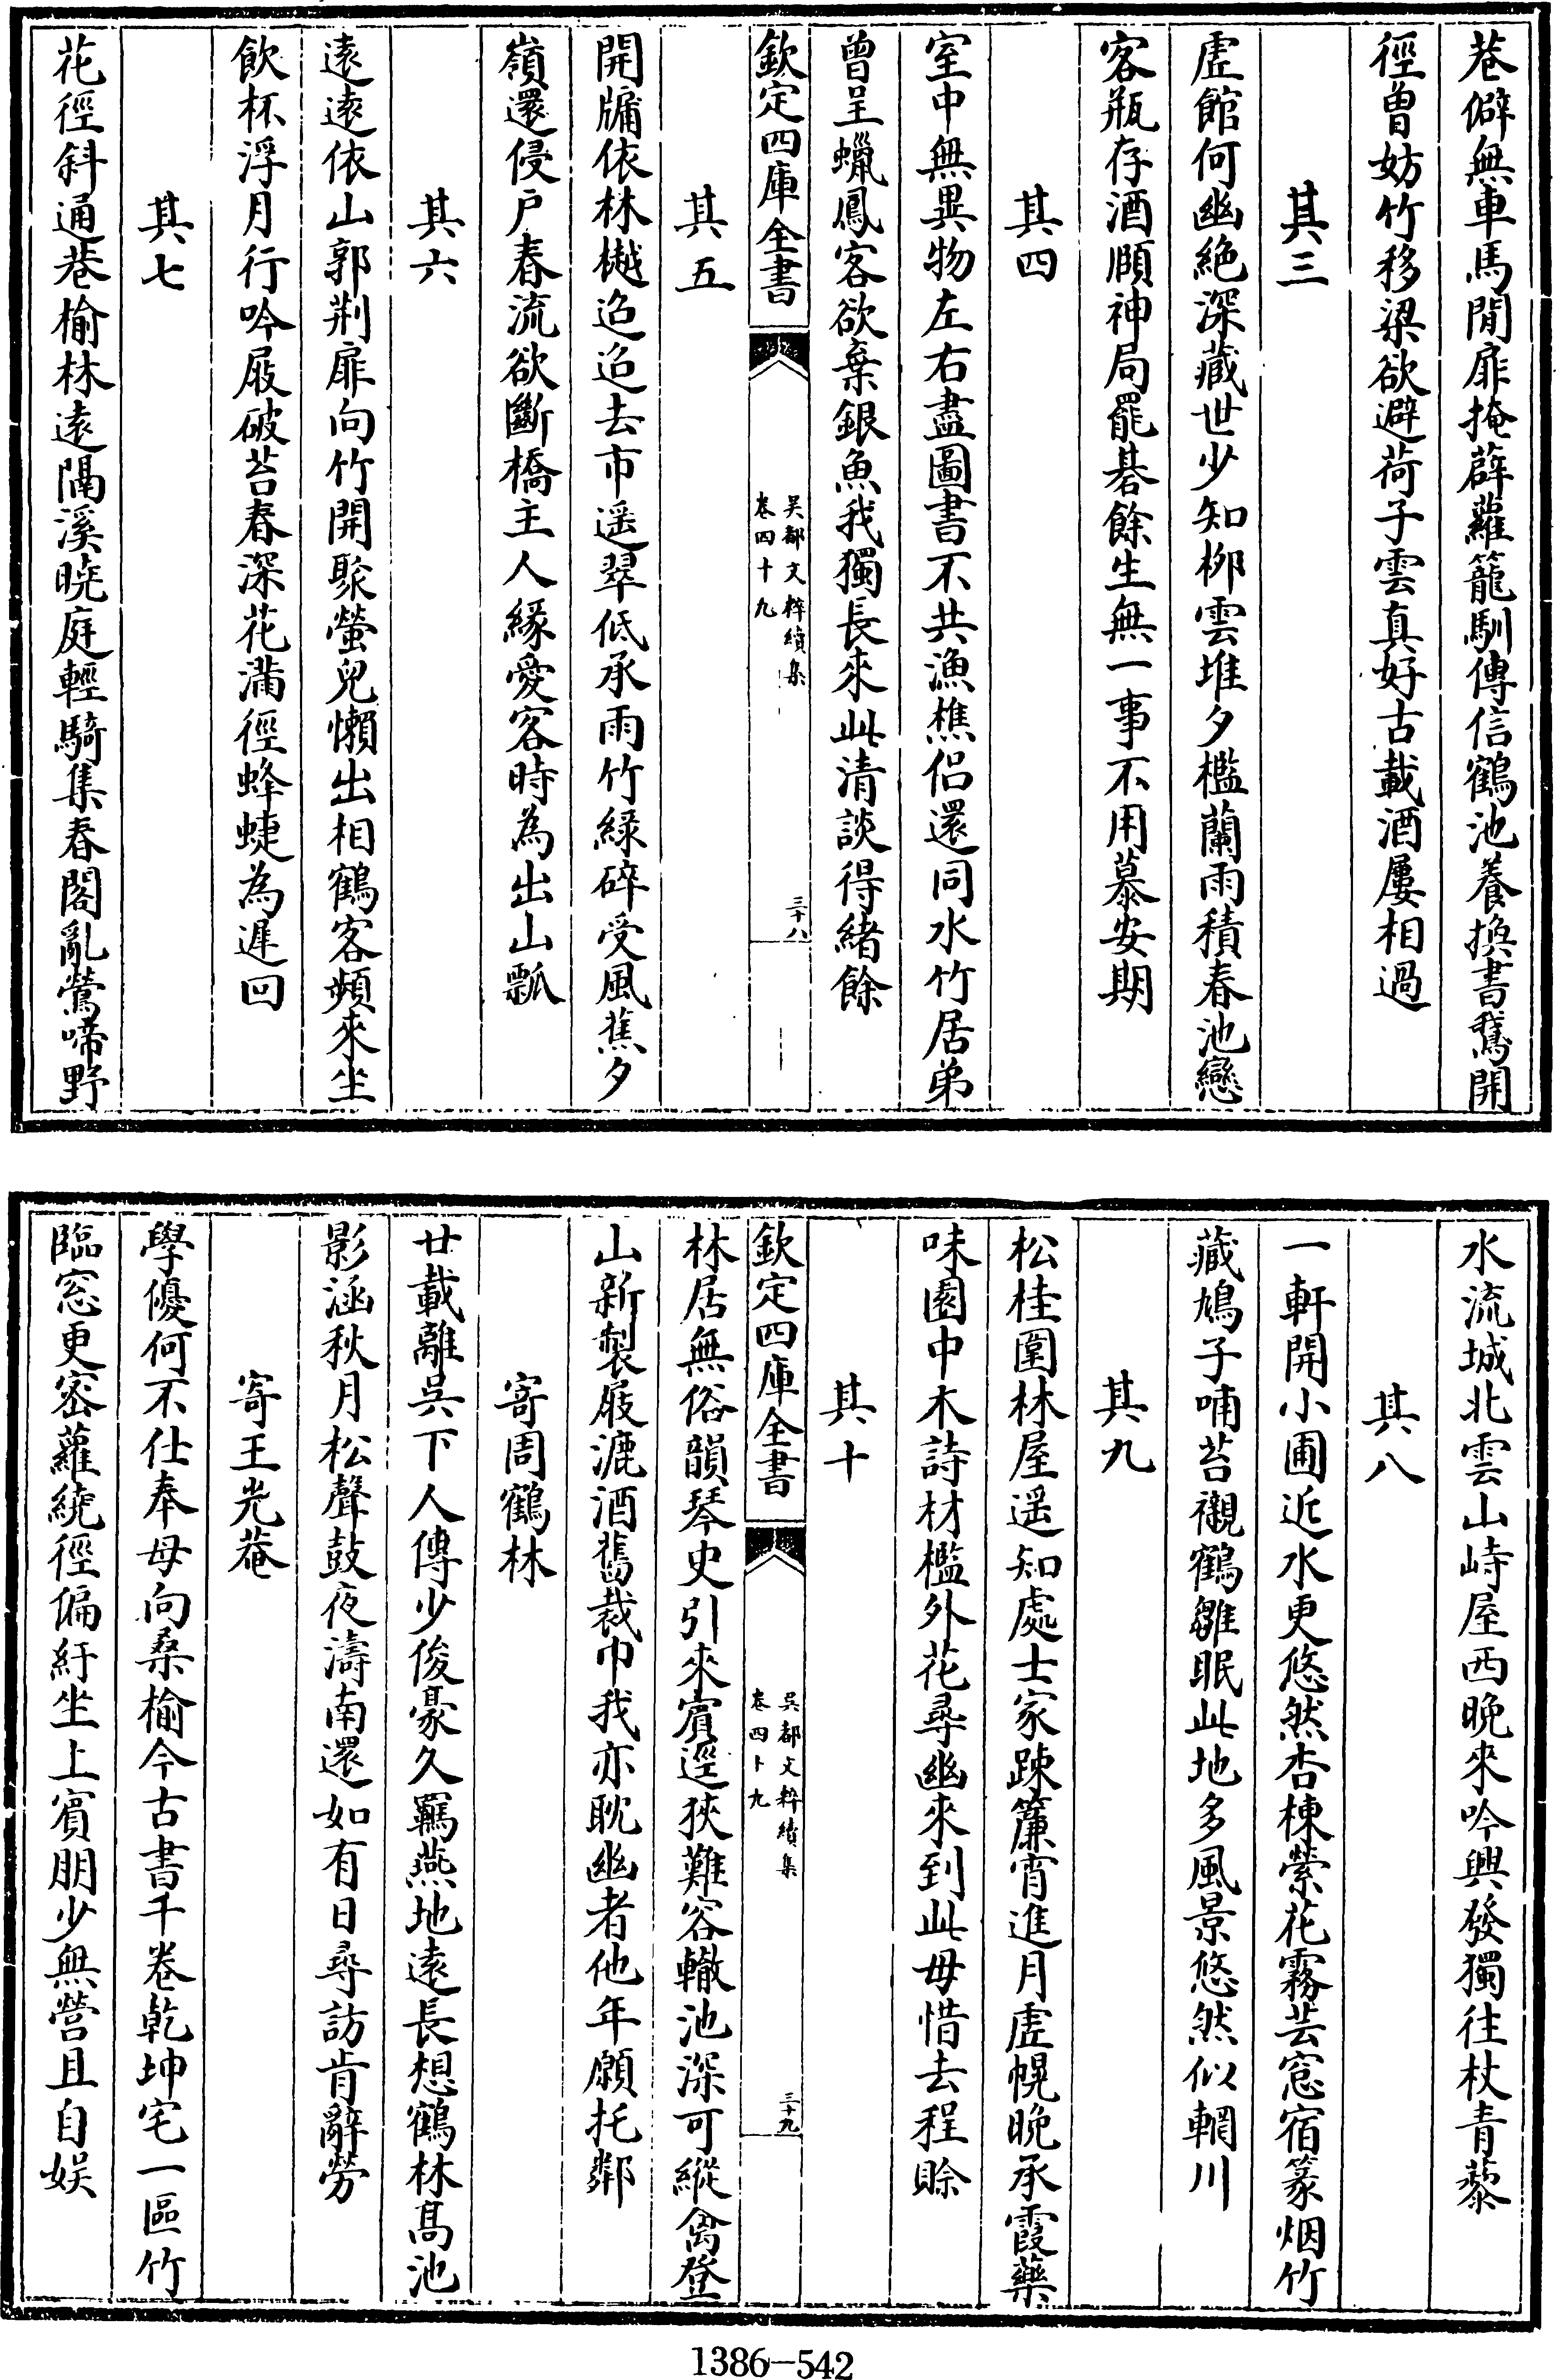 巷僻無車馬閒扉掩薜蘿籠馴傳信鶴池養換書鵞開
徑曾妨竹移梁欲避荷子雲真好古載酒屢相過
其三
虚館何幽絶深藏世少知栁雲堆夕檻蘭雨積春池戀
客瓶存酒頤神局罷碁餘生無一事不用慕安期
其四
室中無異物左右盡圖書不共漁樵侣還同水竹居弟
曾呈蠟鳳客欲棄銀魚我獨長來此清談得緒餘
欽定四庫全書
吳都文粹續集
卷四十九
三十八
其五
開牖依林樾迢迢去市遥翠低承雨竹緑碎受風蕉夕
嶺還侵户春流欲斷橋主人緣愛客時為出山瓢
其六
遠遠依山郭荆扉向竹開聚螢兒懶出相鶴客頻來坐
飲杯浮月行吟屐破苔春深花滿徑蜂蜨為遲回
其七
花徑斜通巷榆林遠隔溪暁庭輕騎集春閣亂鶯啼野
水流城北雲山峙屋西晚來吟興發獨往杖青藜
其八
一軒開小圃近水更悠然杏棟縈花霧芸窓宿篆烟竹
藏鳩子喃苔襯鶴雛眠此地多風景悠然似輞川
其九
松桂圍林屋遥知處士家踈簾宵進月虚幌晚承霞藥
味園中木詩材檻外花尋幽來到此毋惜去程賖
其十
欽定四庫全書
吳都文粹續集
卷四十九
三十九
林居無俗韻琴史引來賔逕狹難容轍池深可縱禽登
山新製屐漉酒舊裁巾我亦耽幽者他年願托鄰
寄周鶴林
廿載離吳下人傳少俊豪久羈燕地遠長想鶴林髙池
影涵秋月松聲鼓夜濤南還如有日尋訪肯辭勞
寄王光菴
學優何不仕奉母向桑榆今古書千卷乾坤宅一區竹
臨窓更宻蘿繞徑偏紆坐上賓朋少無營且自娱
1386-542